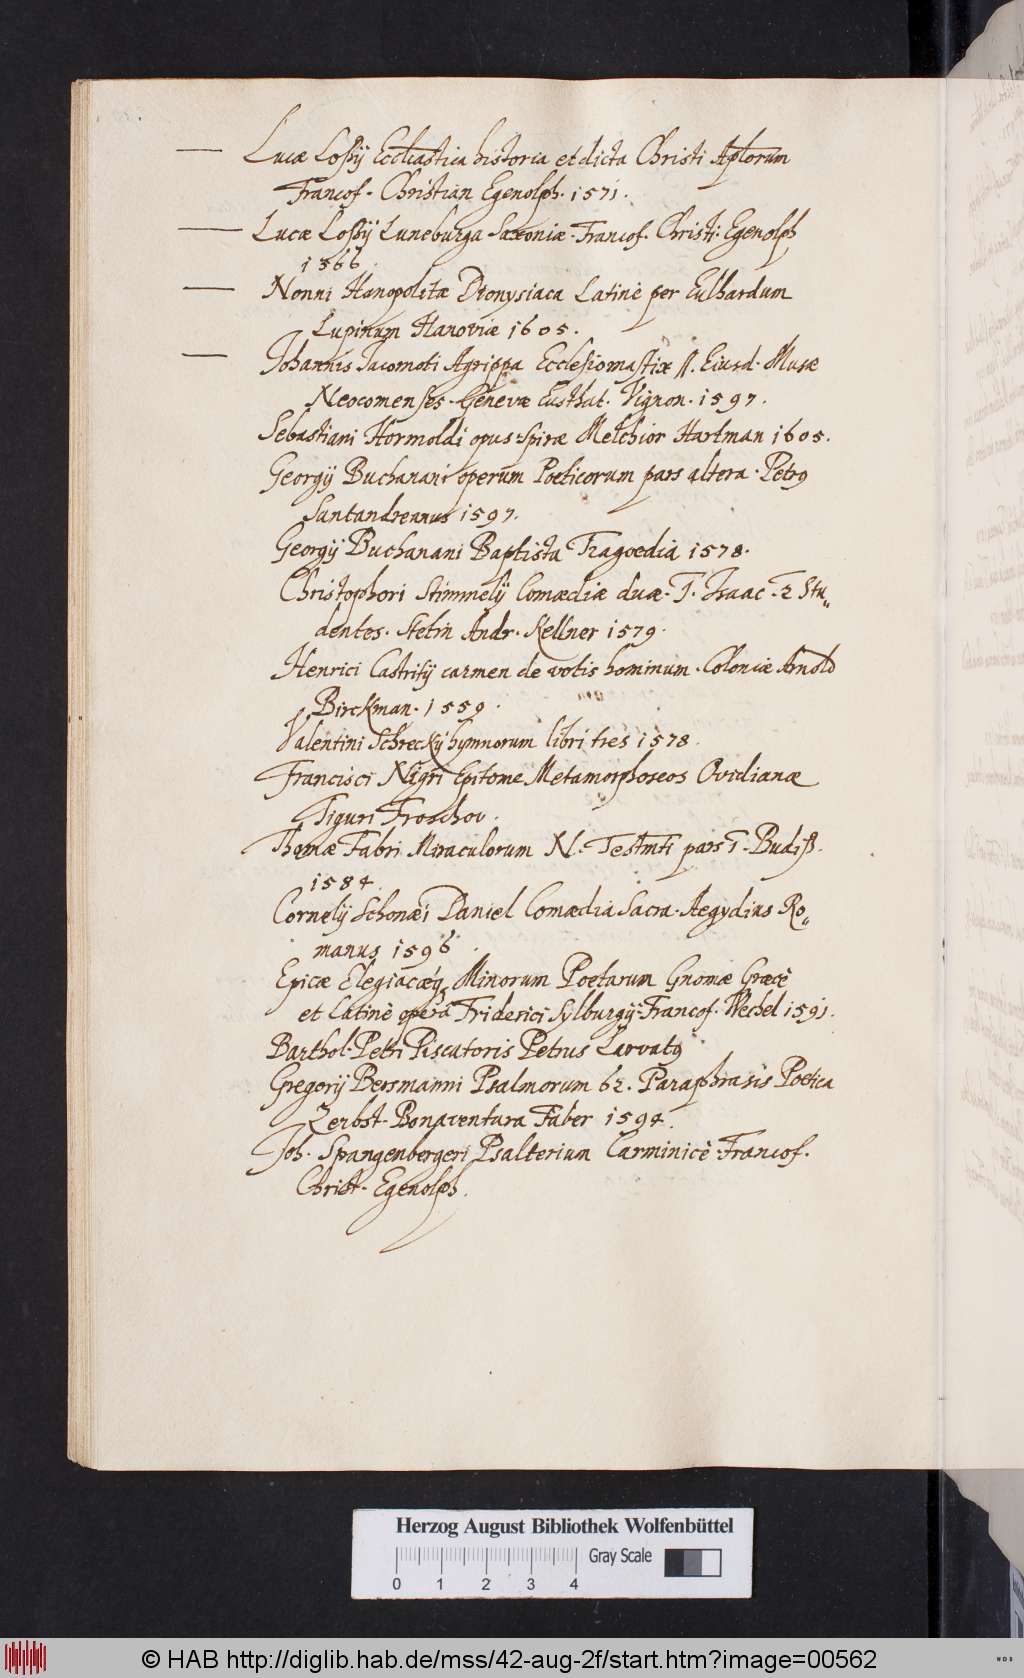 Lucæ Loßij Ecclastica historia et dicta Christi Aplorum
Francof. Christian Egenolph. 1571.
Lucæ Loßij Luneburga Saxoniæ. Francof. Christi. Egenolph
1566.
Nonni Hanopolitæ Dionysiaca Latinè per Eulhardum
Lupinum Hanoviæ 1605.
Johannis Jacomoti Agrippa Ecclesiomastix //. Eiusd. Musæ
Neocomenses. Genevæ Eusthat. Vignon. 1597.
Sebastiani Hormoldi opus. Spiræ Melchior Hartman 1605.
Georgij Buchanani operum Poeticorum pars altera. Petrg
Santandreanus 1597.
Georgij Buchanani Baptista Tragoedia 1578.
Christophori Stimmelij Comædiæ duæ. 1. Isaac. 2 Stu„
dentes. Stetin Andr. Kellner 1579.
Henrici Castritij carmen de votis hominum. Coloniæ Arnold
Birckman. 1559.
Valentini Schreckij hymnorum libri tres 1578.
Francisci Nigri Epitome Metamorphoseos Ovidianæ
Tiguri Froschov.
Thomæ Fabri Miraculorum N. Testmti pars 1. Budiß.
1584.
Cornelij Schonæi Daniel Comædia Sacra. Aegydius Ro„
manus 1596.
Epicæ Elegiacæq Minorum Poetarum Gnomæ Græcè
et Latinè operâ Friderici Sylburgij. Francof. Wechel 1591.
Barthol. Petri Piscatoris Petrus Larvatg
Gregorij Bersmanni Psalmorum 62. Paraphrasis Poetica
Zerbst. Bonaventura Faber 1594.
Joh. Spangenbergeri Psalterium Carminicè. Francof.
Christ. Egenolph.
Herzog August Bibliothek Wolfenbüttel
Gray Scale
0 1 2 3 4
© HAB http://diglib.hab.de/mss/42-aug-2f/start.htm?image=00562